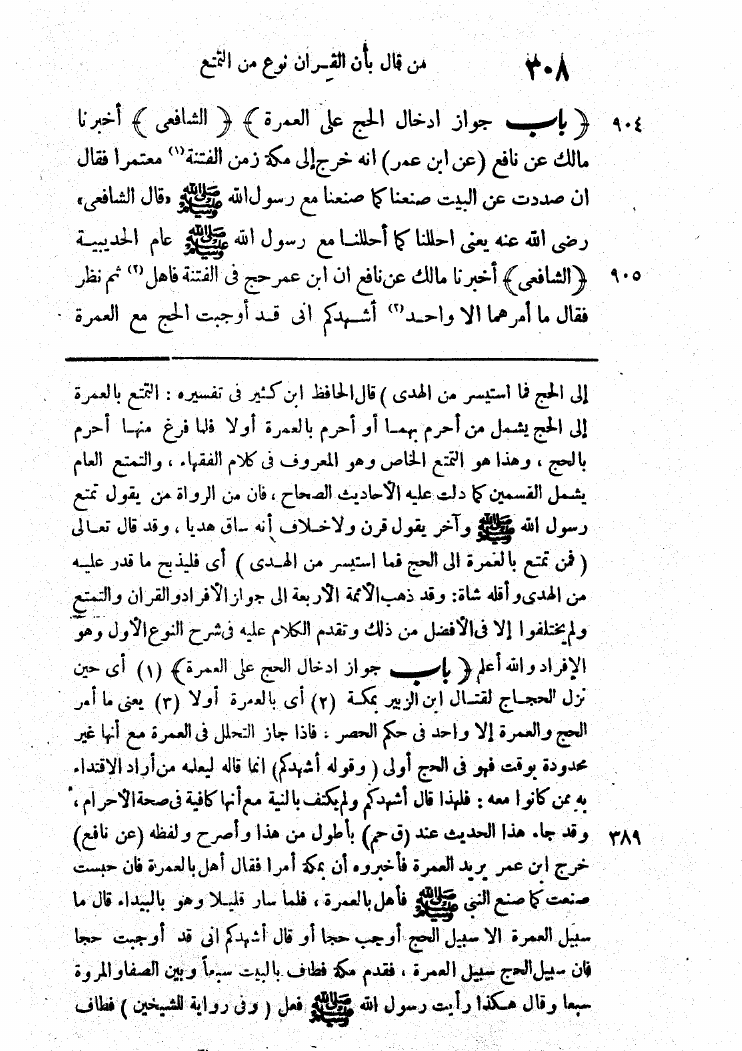 ٣٠٨ من قال بأن القران نوع من التمتع
٩٠٤ ﴿ باب جواز ادخال الحج على العمرة ﴾ ﴿ الشافعى ﴾ أخبرنا
مالك عن نافع (عن ابن عمر) انه خرج إلى مكة زمن الفتنة (١) معتمرا فقال
ان صددت عن البيت صنعنا كما صنعنا مع رسول الله ﷺ «قال الشافعى»
رضى الله عنه يعنى احللنا كما أحللنا مع رسول الله ﷺ عام الحديبية
٩٠٥ ﴿الشافعى﴾ أخبرنا مالك عن نافع ان ابن عمر حج فى الفتنة فاهل (٢) ثم نظر
فقال ما أمرهما الا واحد (٣) أشهدكم انى قد أوجبت الحج مع العمرة
إلى الحج فما استيسر من الهدى ) قال الحافظ ابن كثير فى تفسيره : التمتع بالعمرة
إلى الحج يشمل من أحرم بهما أو أحرم بالعمرة أولا فلما فرغ منها أحرم
بالحج ، وهذا هو التمتع الخاص وهو المعروف فى كلام الفقهاء ، والتمتع العام
يشمل القسمين كما دلت عليه الأحاديث الصحاح ، فان من الرواة من يقول تمتع
رسول الله ﷺ وآخر يقول قرن ولا خلاف أنه ساق هديا ، وقد قال تعالى
( فمن تمتع بالعمرة الى الحج فما استيسر من الهدى ) أى فليذبح ما قدر عليه
من الهدى وأقله شاة: وقد ذهب الأئمة الأربعة الى جواز الأفراد والقران والتمتع
ولم يختلفوا إلا فى الأفضل من ذلك وتقدم الكلام عليه فى شرح النوع الأول وهو
الإفراد والله أعلم ﴿ باب جواز ادخال الحج على العمرة﴾ (١) أى حين
نزل الحجاج لقتال ابن الزبير بمكة (٢) أى بالعمرة أولا (٣) يعنى ما أمر
الحج والعمرة إلا واحد فى حكم الحصر ، فاذا جاز التحلل فى العمرة مع أنها غير
محدودة بوقت فهو فى الحج أولى ( وقوله أشهدكم ) انما قاله ليعلمه من أراد الاقتداء
به ممن كانوا معه : فلهذا قال أشهدكم ولم يكتف بالنية مع أنها كافية فى صحة الأحرام ،
٣٨٩ وقد جاء هذا الحديث عند (ق حم) بأطول من هذا وأصرح ولفظه (عن نافع)
خرج ابن عمر يريد العمرة فأخبروه أن بمكة أمرا فقال أهل بالعمرة فان حبست
صنعت كما صنع النبى ﷺ فأهل بالعمرة ، فلما سار قليلا وهو بالبيداء قال ما
سبيل العمرة الا سبيل الحج أوجب حجا أو قال أشهدكم انى قد أوجبت حجا
فان سبيل الحج سبيل العمرة ، فقدم مكة فطاف بالبيت سبعاً وبين الصفا والمروة
سبعا وقال هكذا رأيت رسول الله ﷺ فعل ( وفى رواية للشيخين ) فطاف